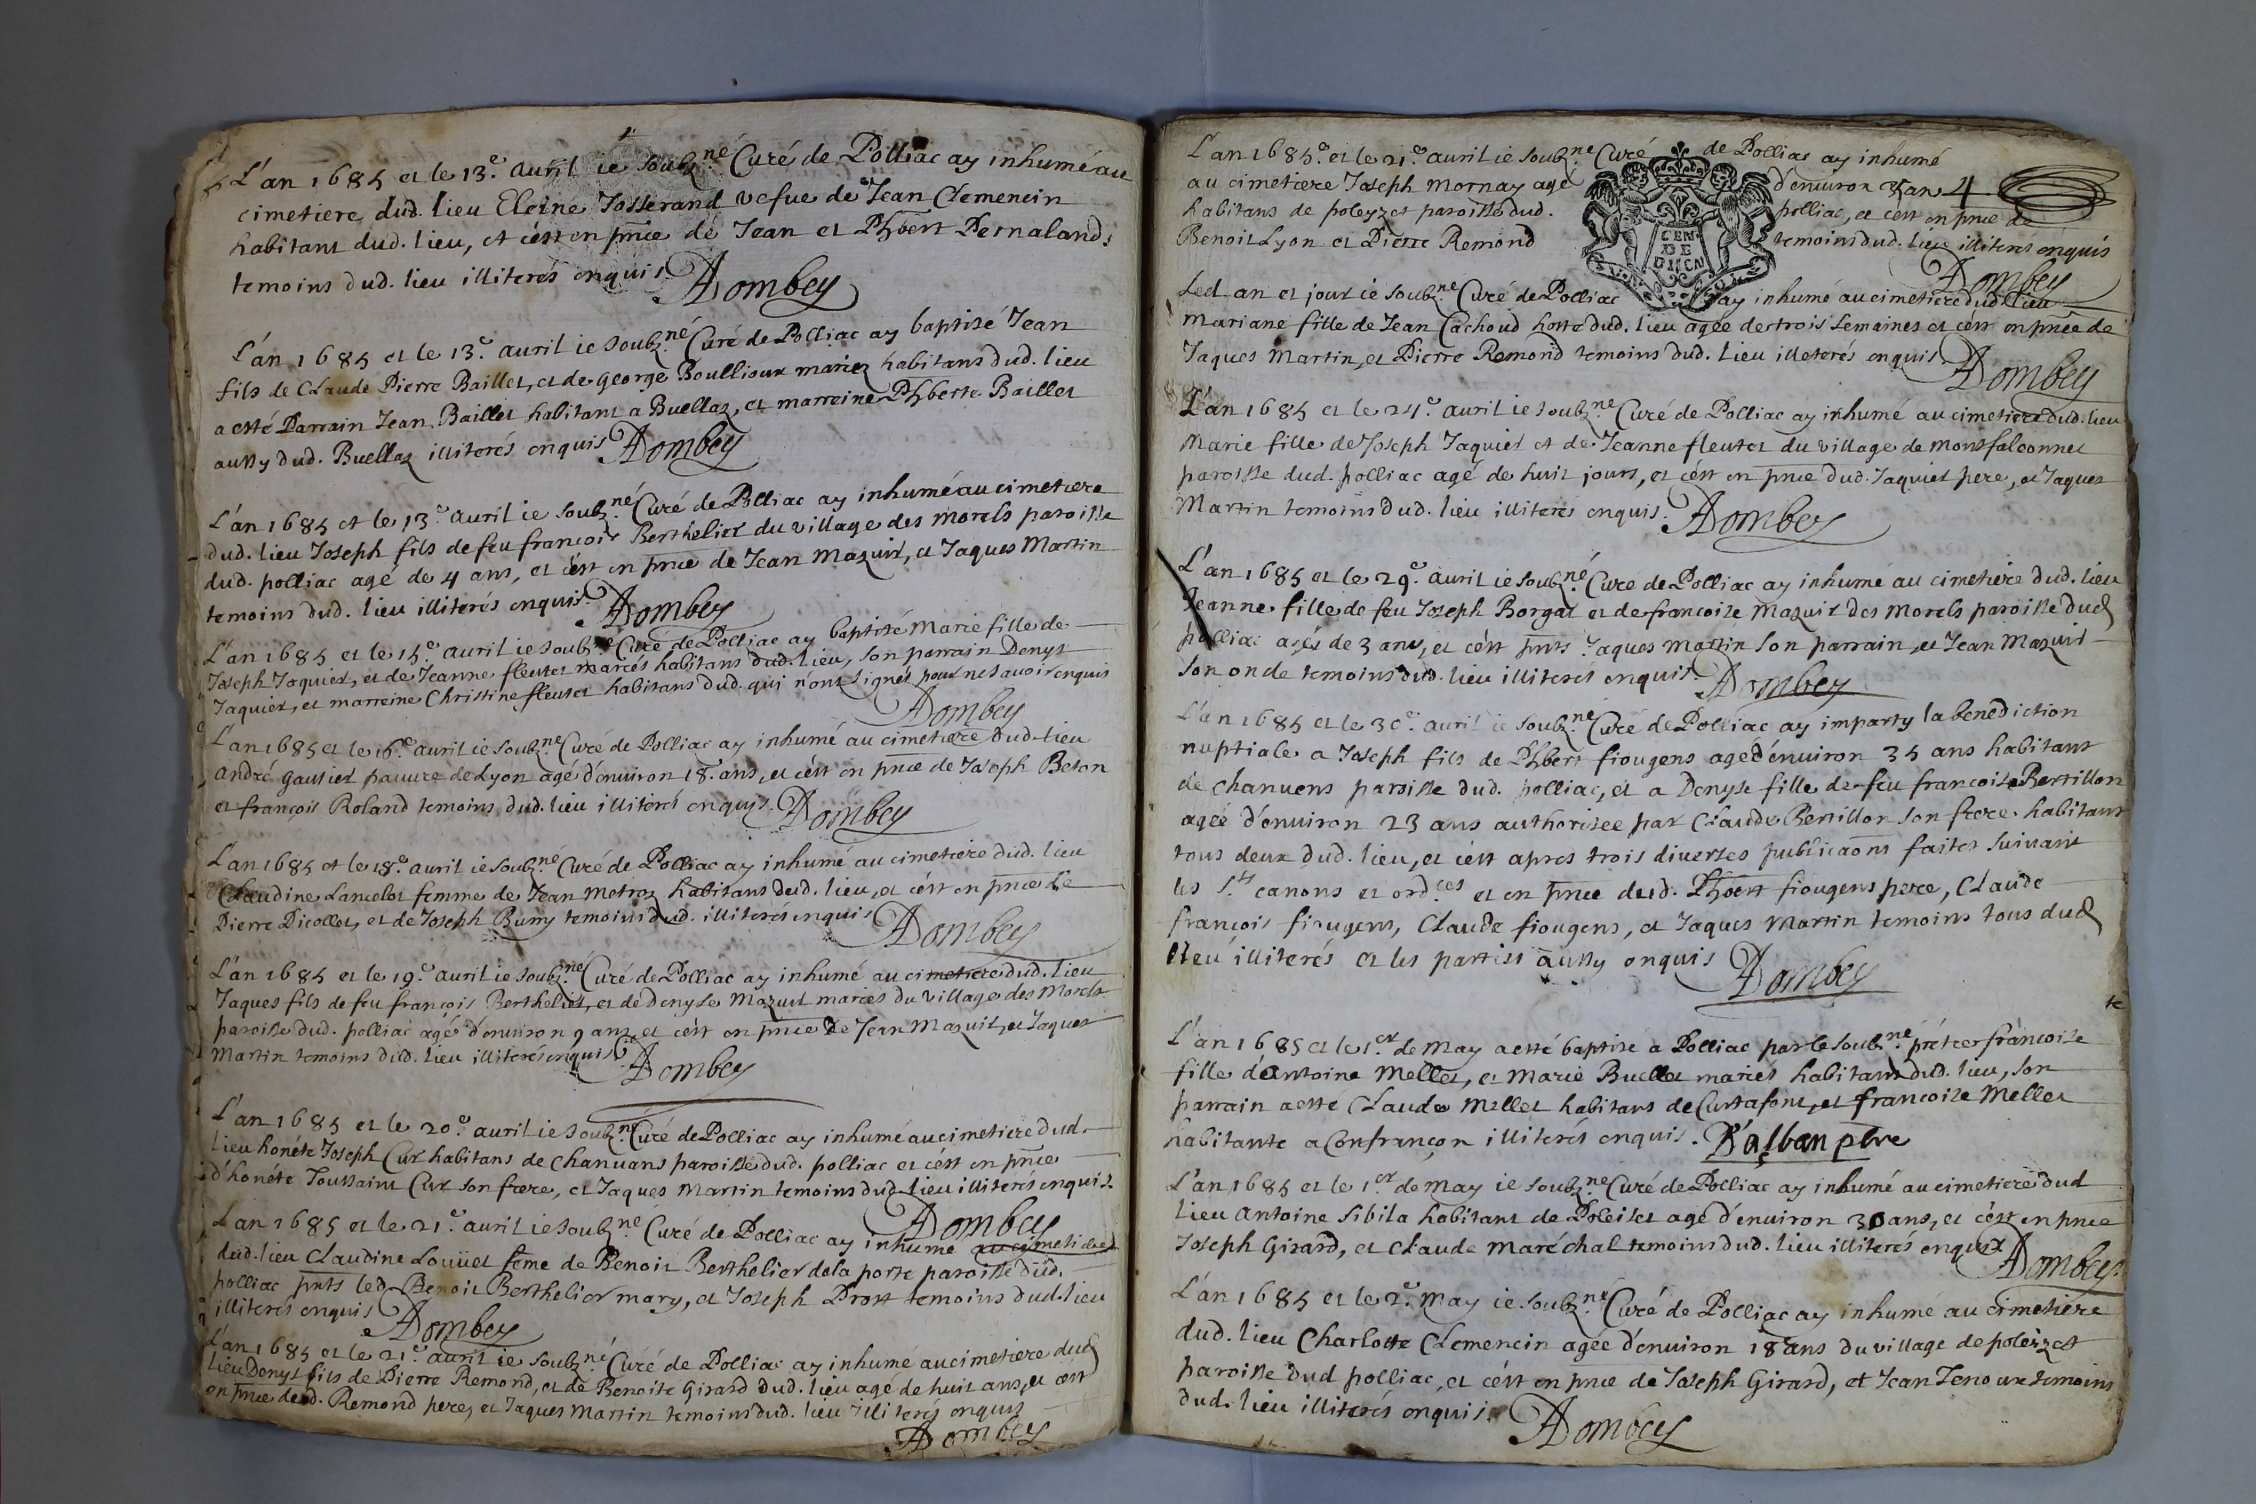 L'an 1685 et le 13.e avril ie soubz.né Curé de Polliac ay inhumé au
cimetiere dud. lieu Eleine Josserand vefue de Jean Clemencin
habitant dud. lieu, et c'est en pnce de Jean et Phbert Pernaland.
temoins dud. lieu illiterés enquis ADombey
L'an 1685 et le 13.e avril ie soubz.né Curé de Polliac ay baptisé Jean
fils de Claude Pierre Baillet, et de george Boullioux mariez habitans dud. lieu
a esté Parrain Jean Baillet habitant a Buellaz, et marreine Phberte Baillet
aussy dud. Buellaz illiterés enquis ADombey
L'an 1685 et le 13.e avril ie soubz.né Curé de Polliac ay inhumé au cimetiere
dud. lieu Joseph fils de feu francois Berthelier du village des morels paroisse
dud. polliac agé de 4 ans, et c'est en pnce de Jean mazuir, et Jaques Martin
temoins dud. lieu illiterés enquis. ADombey
L'an 1685 et le 15.e avril ie soubz.né Curé de Polliac ay baptisé Marie fille de
Joseph Jaquier, et de Jeanne fleutet mariés habitans dud. lieu, son parrain Denys
Jaquier, et marreine Christine fleutet habitans dud. qui n'ont signés pour ne savoir enquis
ADombey
L'an 1685 et le 16.e avril ie soubz.né Curé de Polliac ay inhumé au cimetiere dud. lieu
André gautier pauvre de Lyon agé d'enuiron 18. ans, et c'est en pnce de Joseph Beton
et françois Roland temoins dud. lieu illiterés enquis. ADombey
L'an 1685 et le 18.e avril ie soubz.né Curé de Polliac ay inhumé au cimetiere dud. lieu
Claudine Lancelot femme de Jean metroz habitans dud. lieu, et c'est en pnce de
Pierre Picollet, et de Joseph Buny temoins dud. illiterés enquis ADombey
L'an 1685 et le 19.e avril ie soubz.né Curé de Polliac ay inhumé au cimetiere dud. lieu
Jaques fils de feu françois Berthelier, et de Denyse Mazuit mariés du village des Morels
paroisse dud. polliac agé d'enuiron 9 ans, et c'est en pnce de Jean Mazuit, et Jaques
Martin temoins dud. lieu illiterés enquis. ADombey
L'an 1685 et le 20.e avril ie soubz.né Curé de Polliac ay inhumé au cimetiere dud.
lieu honéte Joseph Cur habitans de Chanuans paroisse dud. polliac et c'est en pnce
d'honéte Toussaint Cur son frere, et Jaques Martin temoins dud. lieu illiterés enquis.
ADombey
L'an 1685 et le 21.e avril ie soubz.né Curé de Polliac ay inhumé au cimetiere
dud. lieu Claudine Louüet feme de Benoit Berthelier de la porte paroisse dud.
polliac pnts led. Benoit Berthelier mary, et Joseph Prost temoins dud. lieu
illiterés enquis ADombey
L'an 1685 et le 21.e avril ie soubz.né Curé de Polliac ay inhumé au cimetiere dud
lieu Denys fils de Pierre Remond, et de Benoite Girard dud. lieu agé de huit ans, et c'est
en pnce dud. Remond pere, et Jaques Martin temoins dud. lieu illiterés enquis
ADombey
L'an 1685.e et le 21.e avril ie soubz.né Curé de Polliac ay inhumé
au cimetiere Joseph mornay agé d'enuiron ans 4
habitans de poleyzet paroisse dud. polliac, et c'est en pnce de
Benoit Lyon et Pierre Remond temoins dud. lieu illiterés enquis
ADombey
Led. an et jour ie soubz.né Curé de Polliac ay inhumé au cimetiere dud. lieu
Mariane fille de Jean Cachoud hoste dud. lieu agée de trois semaines et c'est en pnce de
Jaques Martin, et Pierre Remond temoins dud. lieu illeterés enquis ADombey
L'an 1685 et le 24.e avril ie soubz.né Curé de Polliac ay inhumé au cimetiere dud. lieu
Marie fille de Joseph Jaquier et de Jeanne fleutet du village de Montfalconnet
paroisse dud. polliac agé de huit jours, et c'est en pnce dud. Jaquier pere, et Jaques
Martin temoins dud. lieu illiterés enquis. ADombey
L'an 1685 et le 29.e avril ie soubz.né Curé de Polliac ay inhumé au cimetiere dud. lieu
Jeanne fille de feu Joseph Borgat et de francoise Mazuit des Morels paroisse dud
polliac agés de 3 ans, et c'est pnts Jaques Martin son parrain, et Jean Mazuit
son oncle temoins dud. lieu illiterés enquis. ADombey
L'an 1685 et le 30.e avril ie soubz.né Curé de Polliac ay imparty la benediction
nuptiale a Joseph fils de Phbert fiougens agé d'enuiron 35 ans habitant
de chanuens paroisse dud. polliac, et a Denyse fille de feu francoise Bertillon
agée d'enuiron 23 ans authorisee par Claude Bertillon son frere habitans
tous deux dud. lieu, et c'est apres trois diverses publicaons faites suivant
les S.ts canons et ord.ces et en pnce dud. Phbert fiougens pere, Claude
françois fiougens, Claude fiougens, et Jaques Martin temoins tous dud
lieu illiterés et les parties aussy enquis ADombey
L'an 1685 et le 1.er de May a esté baptise a Polliac par le soubz.né prétre françoise
fille d'Antoine Mellet, et Marie Buellet mariés habitans dud. lieu, son
parrain a esté Claude Mellet habitans de Curtafont, et francoise Mellet
habitante a Confrançon illiterés enquis. D'alban pbre
L'an 1685 et le 1.er de May ie soubz.né Curé de Polliac ay inhumé au cimetiere dud
lieu Antoine Sibila habitant de Poleiset agé d'enuiron 30 ans, et c'est en pnce
Joseph Girard, et Claude Maréchal temoins dud. lieu illiterés enquis. ADombey
L'an 1685 et le 2.e May ie soubz.né Curé de Polliac ay inhumé au cimetiere
dud. lieu Charlotte Clemencin agée d'enuiron 18 ans du village de poleizet
paroisse dud polliac, et c'est en pnce de Joseph Girard, et Jean Tenoux temoins
dud. lieu illiterés enquis. ADombey